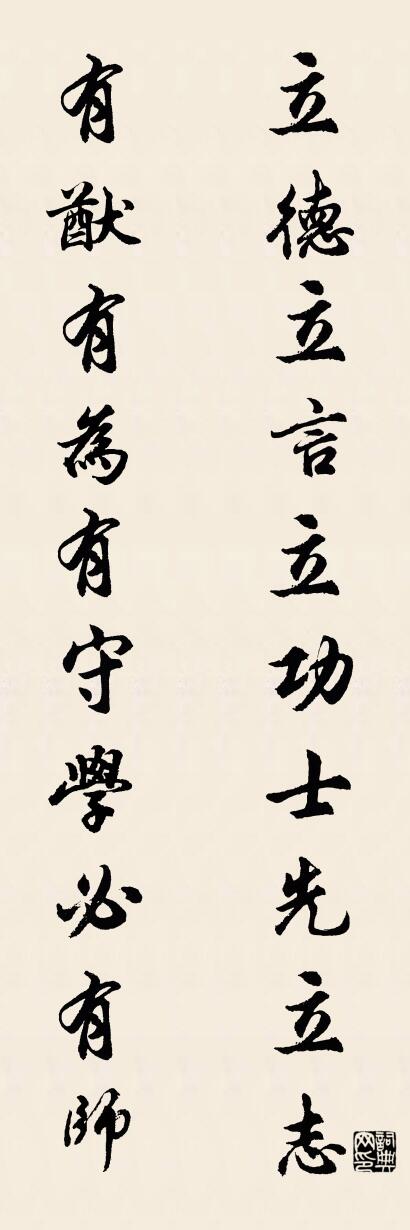 立德立言立功士先立志
有猷有為有守學必有師
詞典网印